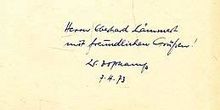 Herrn Eberhard Lämmert
mit freundlichen Grüßen!
7.4.73